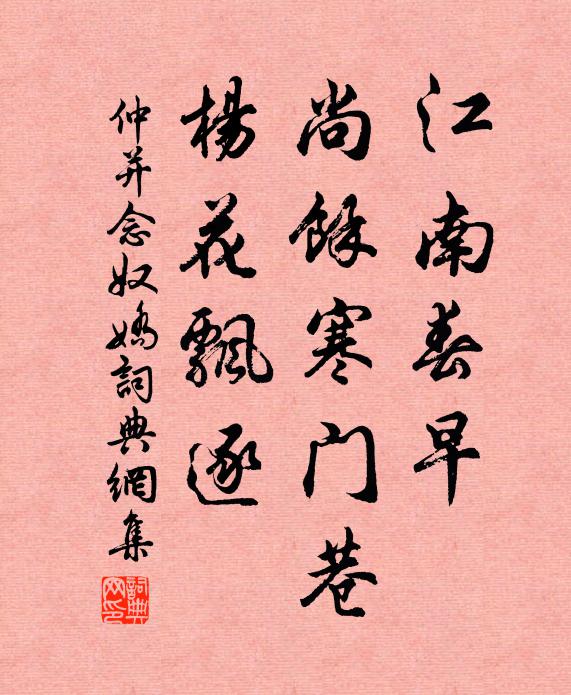 江南春早
尚餘寒门巷
楊花飄逐
仲并念奴嬌詞典網集
詞典网印